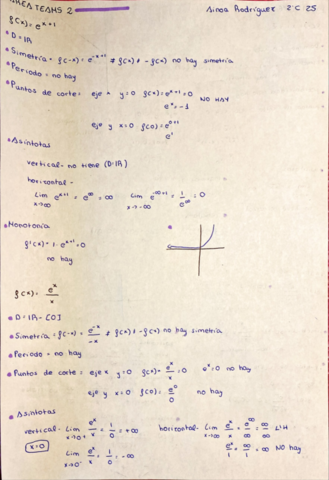 TAREA TEAMS 2 Ainoa Rodríguez 2C 25
f(x) = e^(x+1)
• D = ℝ
• Simetría = f(-x) = e^(-x+1) ≠ f(x) ≠ -f(x) no hay simetría
• Periodo = no hay
• Puntos de corte: eje x y=0 f(x) = e^(x+1) = 0
e^x = -1 NO HAY
eje y x=0 f(0) = e^(0+1)
e^1
• Asíntotas
vertical - no tiene (D=ℝ)
horizontal -
Lim x→∞ e^(x+1) = e^∞ = ∞ Lim x→-∞ e^(-∞+1) = 1/e^∞ = 0
• Monotonía
f'(x) = 1·e^(x+1) = 0
no hay
f(x) = e^x/x
• D = ℝ - [0]
• Simetría = f(-x) = e^(-x)/-x ≠ f(x) ≠ -f(x) no hay simetría
• Periodo = no hay
• Puntos de corte = eje x y=0 f(x) = e^x/x = 0 e^x = 0 no hay
eje y x=0 f(0) = e^0/0 no hay
• Asíntotas
vertical - Lim x→0+ e^x/x = 1/0 = +∞ horizontal - Lim x→∞ e^x/x = e^∞/∞ = ∞/∞ L'H
x=0
Lim x→0- e^x/x = 1/0 = -∞ e^x/1 = e^∞/1 = ∞ NO hay